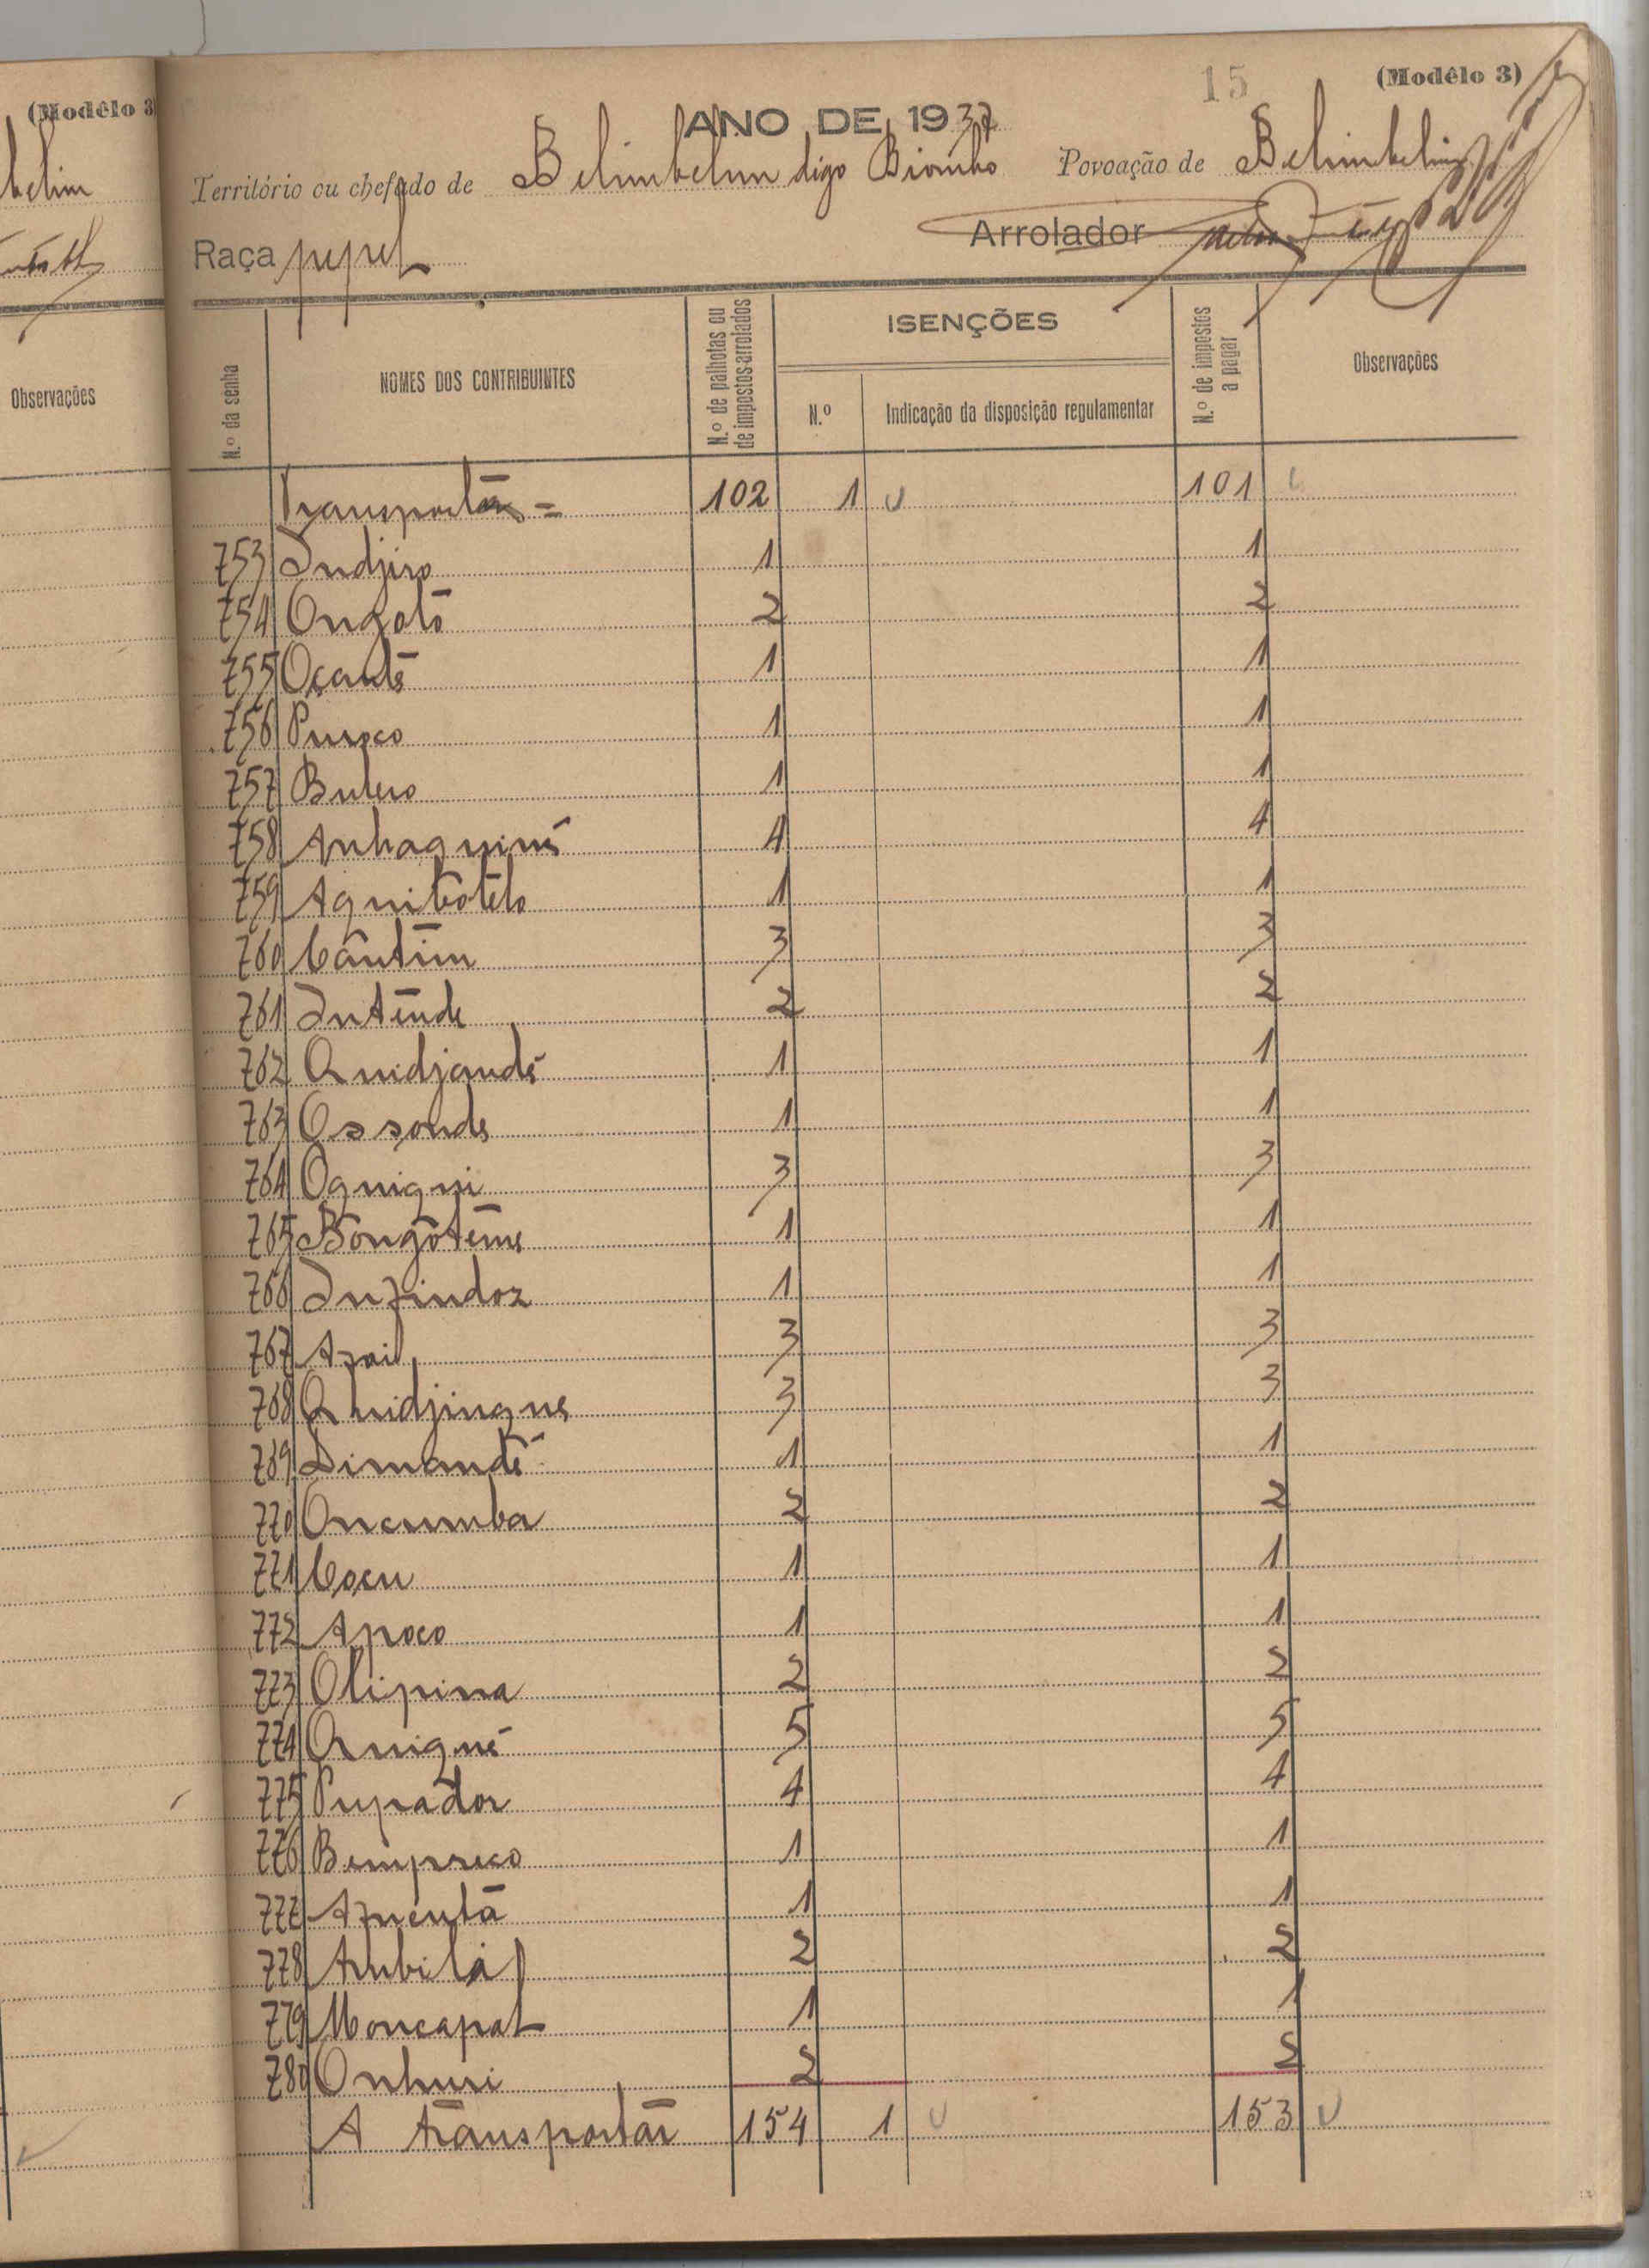 (Modêlo 3
belim
Observações
15
(Modêlo 3)
ANO DE 1937
Território ou chefado de Belimbelim digo Biombo Povoação de Belimbelim
Arrolador
Raça pepel
N.º da senha
NOMES DOS CONTRIBUINTES
N.º de palhotas ou de impostos arrolados
ISENÇÕES
N.º
Indicação da disposição regulamentar
N.º de impostos a pagar
Observações
Transportār = 102 1 101
753 Indjiro 1 1
754 Ongotō 2 2
755 Oçandē 1 1
756 Puroco 1 1
757 Bulero 1 1
758 Anhaquiné 4 4
759 Aquibotelo 1 1
760 Cāntim 3 3
761 Intende 2 2
762 Quidjandé 1 1
763 Ossonde 1 1
764 Oquiqui 3 3
765 Bongōtēme 1 1
766 Infindoz 1 1
767 Azail 3 3
768 Quidjingue 3 3
769 Dimandé 1 1
770 Oncumba 2 2
771 Cocu 1 1
772 Apoco 1 1
773 Olipina 2 2
774 Quiqué 5 5
775 Pupador 4 4
776 Bempreco 1 1
777 Azuentā 1 1
778 Anbilal 2 2
779 Moncapal 1 1
780 Onhuri 2 2
A transportār 154 1 153